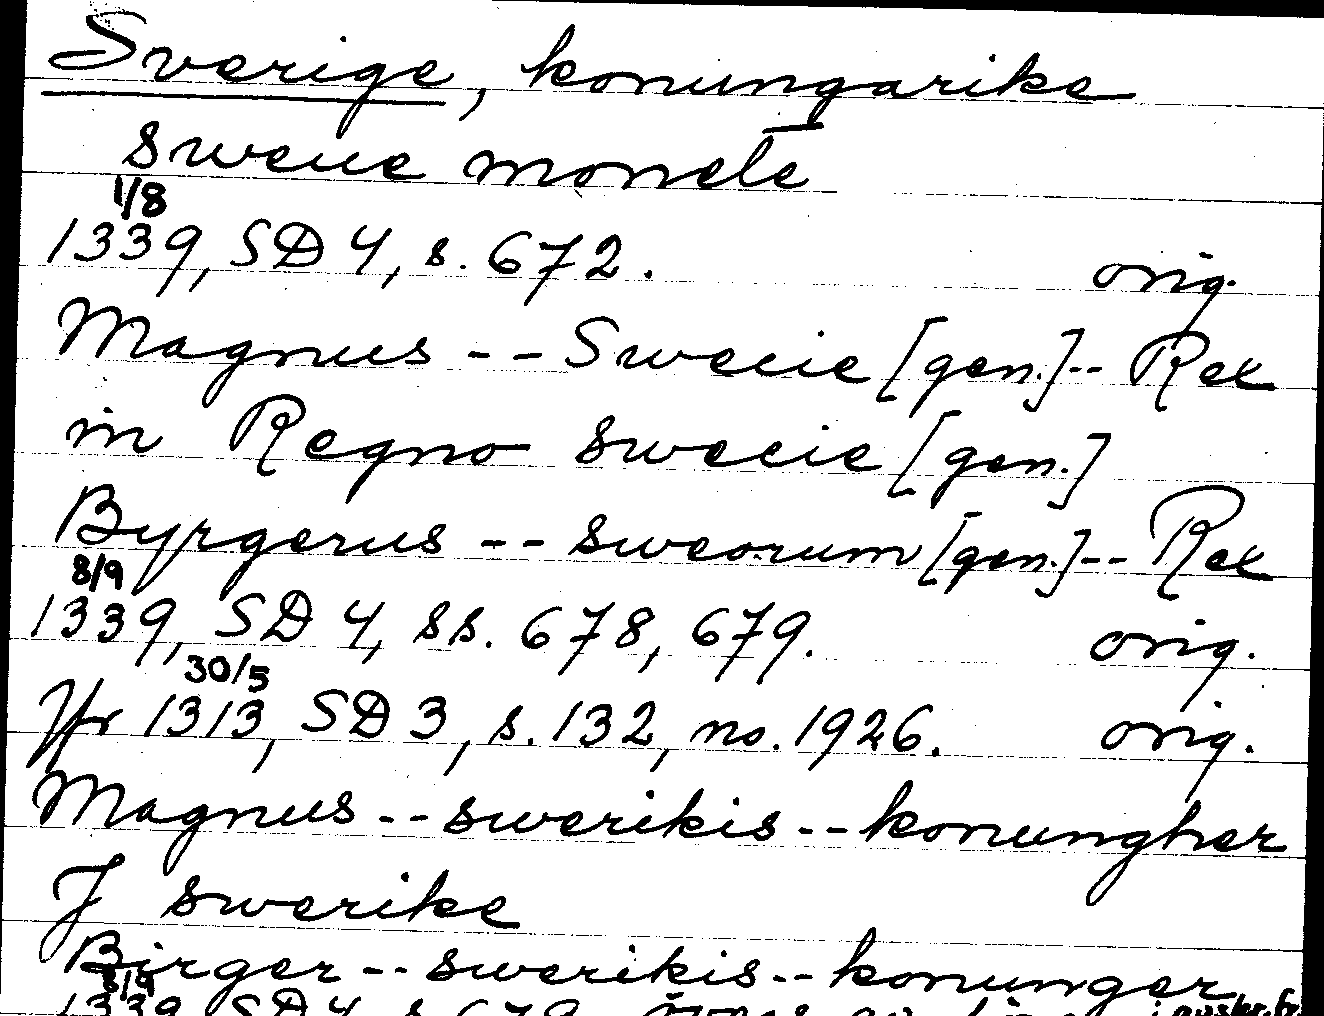 Sverige, konungarike
sweue monete
1/8
1339, SD 4, s. 672. orig.
Magnus -- Swecie [gen.] -- Rex
in Regno swecie [gen.]
Byrgerus -- sweorum [gen.] -- Rex
8/9
1339, SD 4, ss. 678, 679. orig.
30/5
Jfr 1313, SD 3, s. 132, no. 1926. orig.
Magnus -- swerikis -- konungher
J swerike
Birger -- swerikis -- konunger
8/9
1339 SD 4 s 679